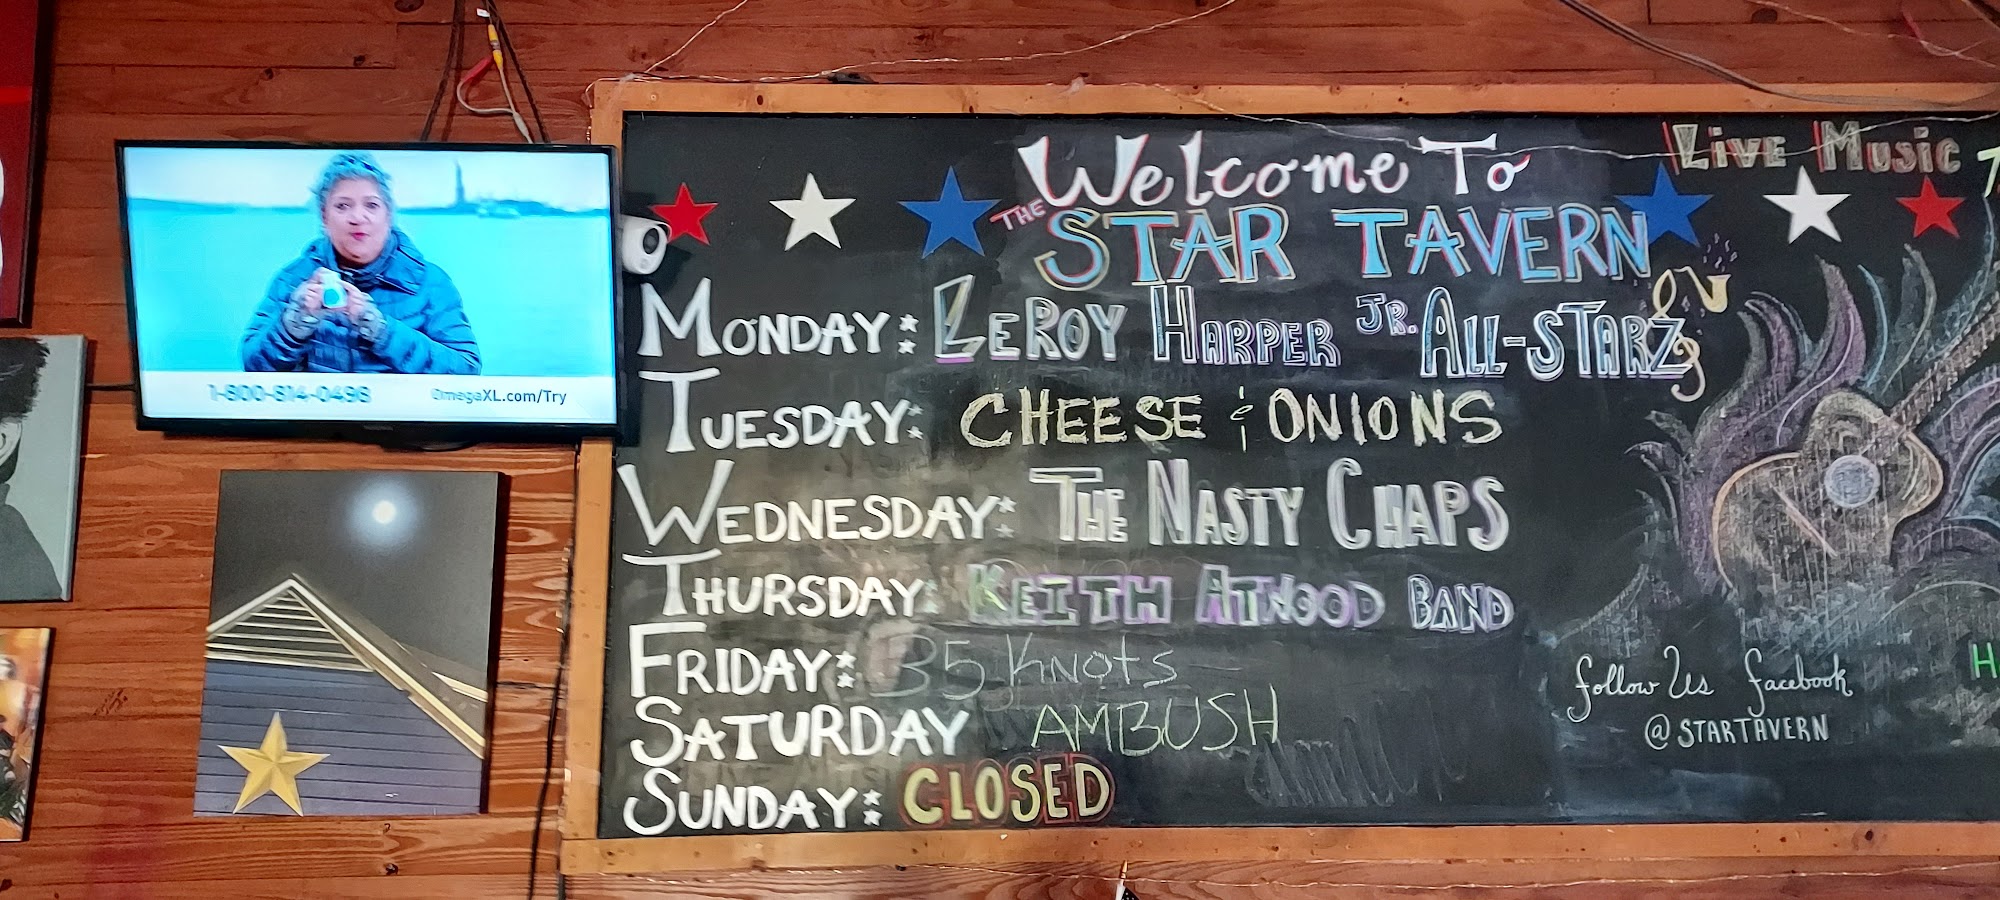 Welcome To
THE STAR TAVERN
Live Music
MONDAY: LEROY HARPER JR. ALL-STARZ
TUESDAY: CHEESE & ONIONS
WEDNESDAY: THE NASTY CHAPS
THURSDAY: KEITH ATWOOD BAND
FRIDAY: 35 Knots
SATURDAY AMBUSH
SUNDAY: CLOSED
follow Us facebook
@STARTAVERN
1-800-814-0498 OmegaXL.com/Try